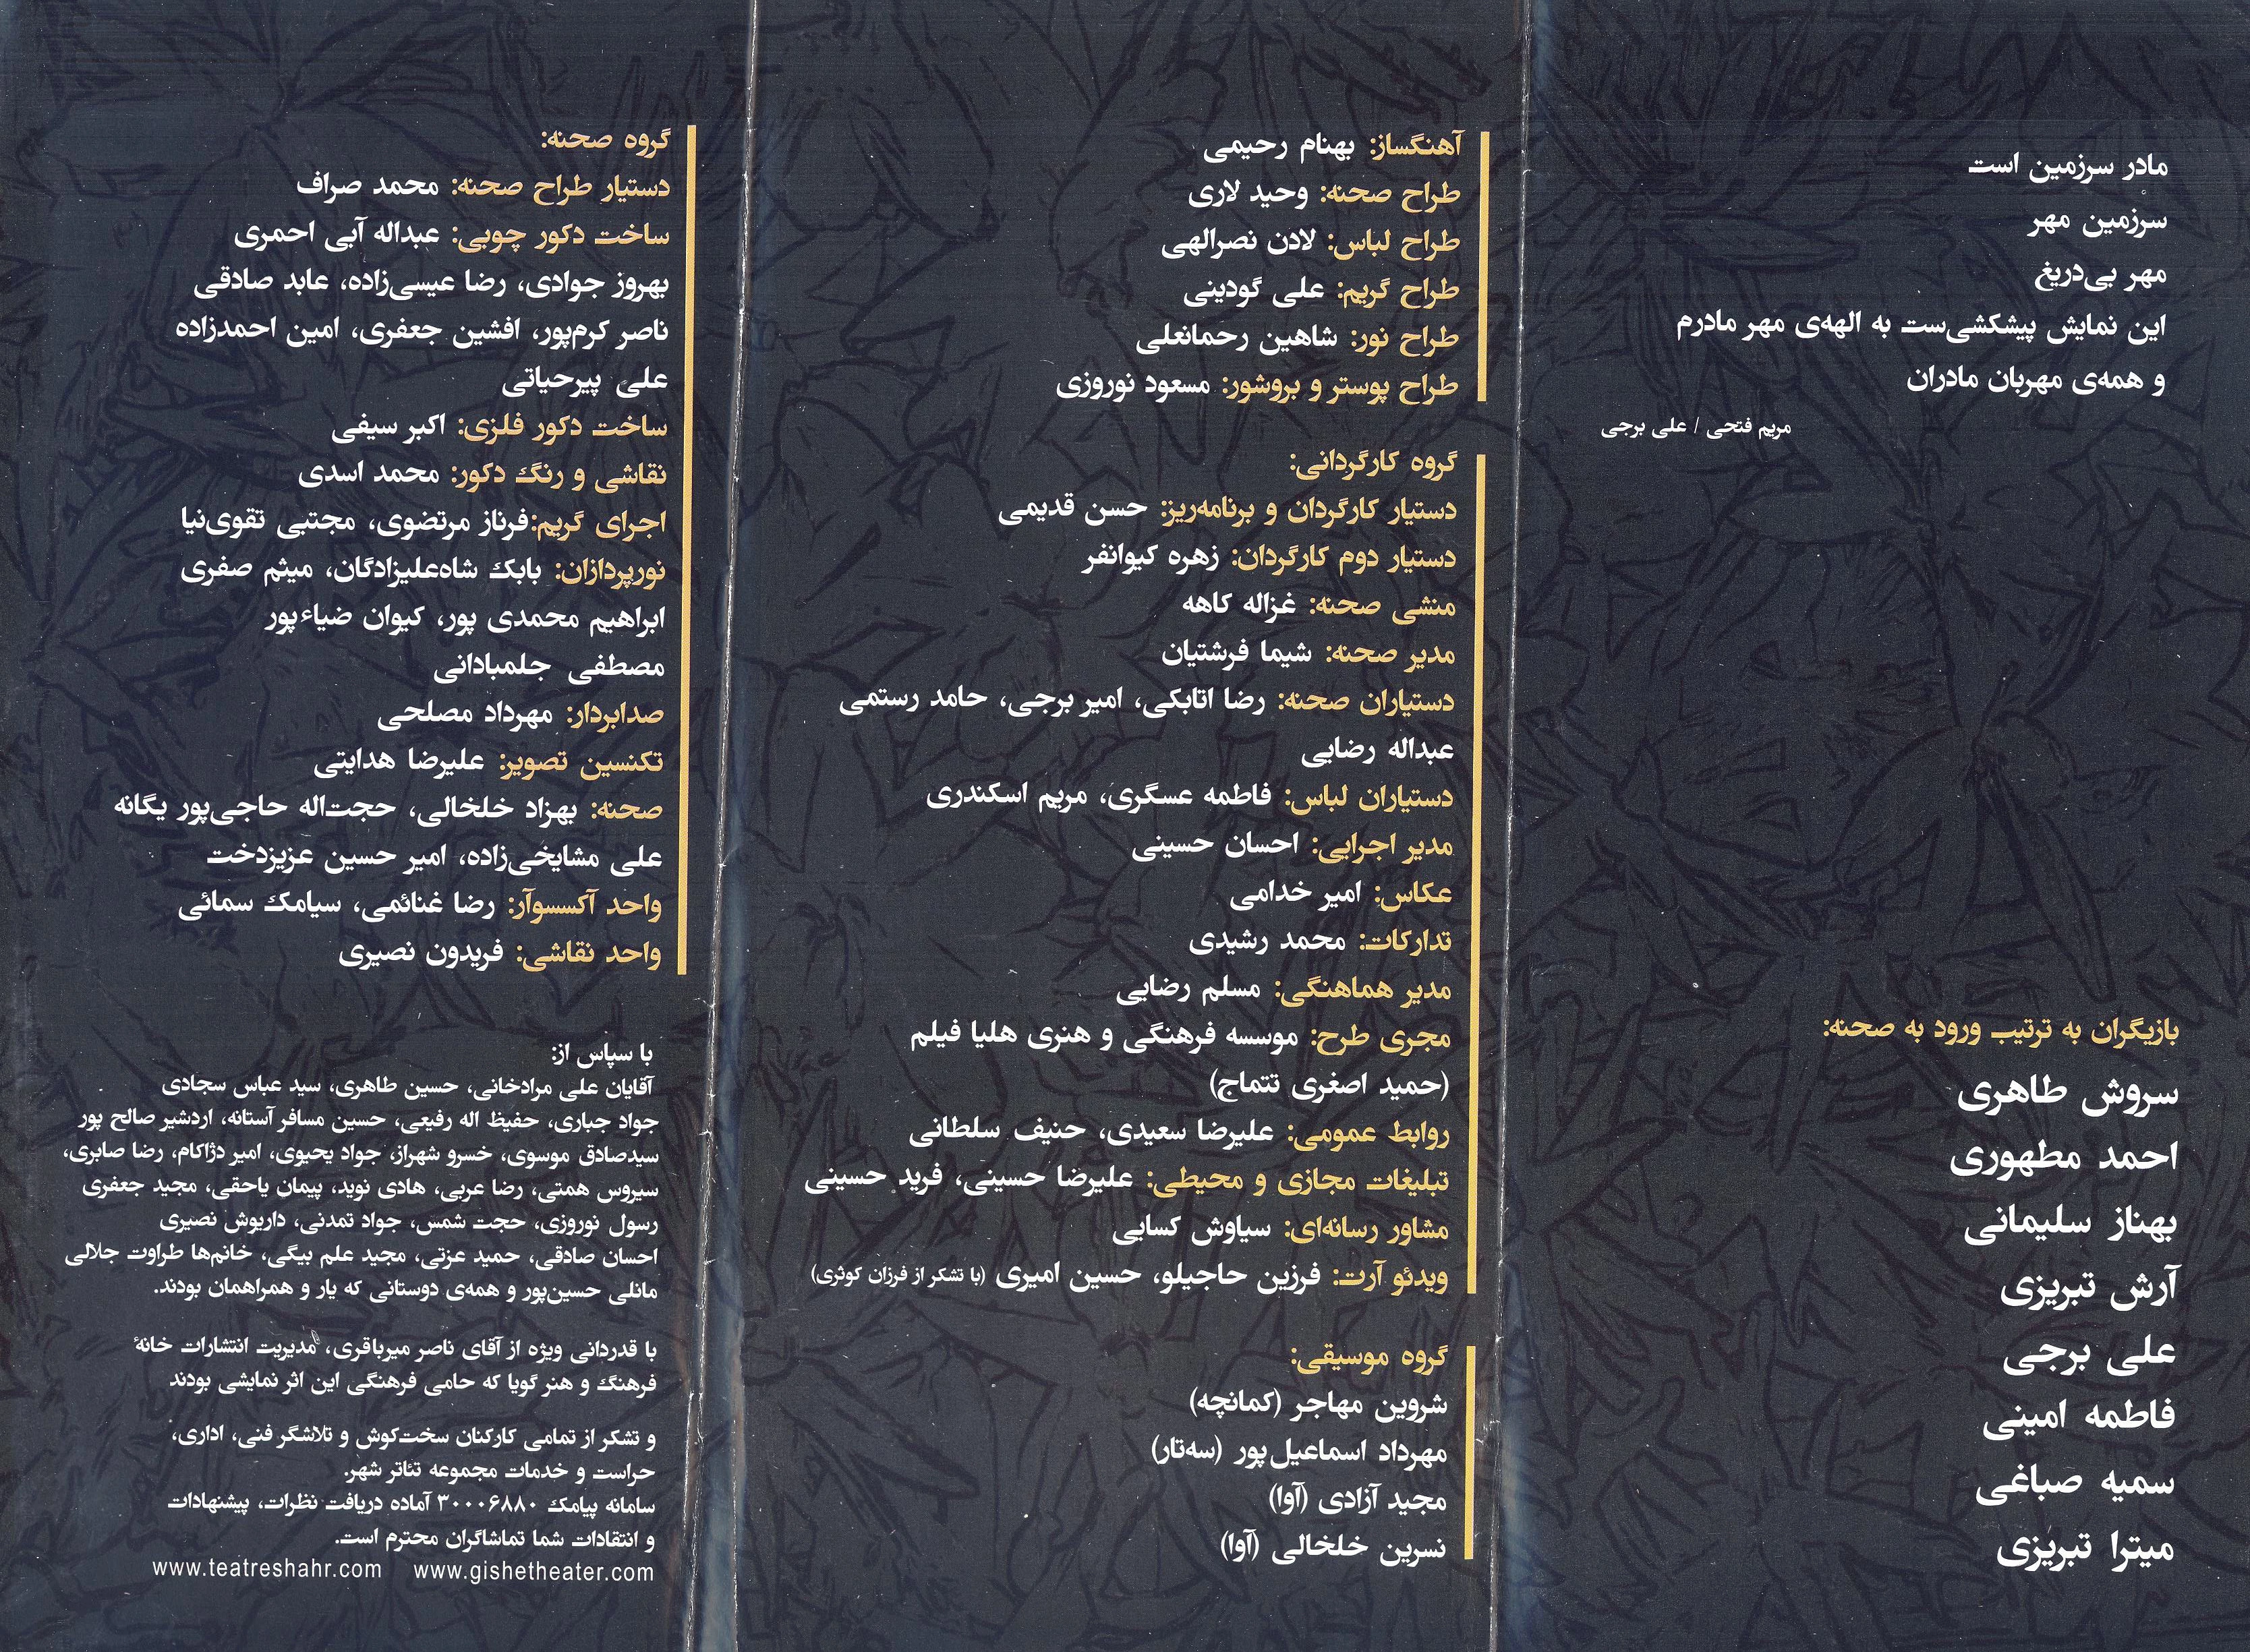 مادر سرزمین است
سرزمین مهر
مهر بی‌دریغ
این نمایش پیشکشی‌ست به الهه‌ی مهر مادرم
و همه‌ی مهربان مادران
مریم فتحی / علی برجی
بازیگران به ترتیب ورود به صحنه:
سروش طاهری
احمد مطهوری
بهناز سلیمانی
آرش تبریزی
علی برجی
فاطمه امینی
سمیه صباغی
میترا تبریزی
آهنگساز: بهنام رحیمی
طراح صحنه: وحید لاری
طراح لباس: لادن نصرالهی
طراح گریم: علی گودینی
طراح نور: شاهین رحمانعلی
طراح پوستر و بروشور: مسعود نوروزی
گروه کارگردانی:
دستیار کارگردان و برنامه‌ریز: حسن قدیمی
دستیار دوم کارگردان: زهره کیوانفر
منشی صحنه: غزاله کاهه
مدیر صحنه: شیما فرشتیان
دستیاران صحنه: رضا اتابکی، امیر برجی، حامد رستمی
عبداله رضایی
دستیاران لباس: فاطمه عسگری، مریم اسکندری
مدیر اجرایی: احسان حسینی
عکاس: امیر خدامی
تدارکات: محمد رشیدی
مدیر هماهنگی: مسلم رضایی
مجری طرح: موسسه فرهنگی و هنری هلیا فیلم
(حمید اصغری تتماج)
روابط عمومی: علیرضا سعیدی، حنیف سلطانی
تبلیغات مجازی و محیطی: علیرضا حسینی، فرید حسینی
مشاور رسانه‌ای: سیاوش کسایی
ویدئو آرت: فرزین حاجیلو، حسین امیری (با تشکر از فرزان کوثری)
گروه موسیقی:
شروین مهاجر (کمانچه)
مهرداد اسماعیل‌پور (سه‌تار)
مجید آزادی (آوا)
نسرین خلخالی (آوا)
گروه صحنه:
دستیار طراح صحنه: محمد صراف
ساخت دکور چوبی: عبداله آبی احمری
بهروز جوادی، رضا عیسی‌زاده، عابد صادقی
ناصر کرم‌پور، افشین جعفری، امین احمدزاده
علی پیرحیاتی
ساخت دکور فلزی: اکبر سیفی
نقاشی و رنگ دکور: محمد اسدی
اجرای گریم:فرناز مرتضوی، مجتبی تقوی‌نیا
نورپردازان: بابک شاه‌علیزادگان، میثم صفری
ابراهیم محمدی پور، کیوان ضیاءپور
مصطفی جلمبادانی
صدابردار: مهرداد مصلحی
تکنسین تصویر: علیرضا هدایتی
صحنه: بهزاد خلخالی، حجت‌اله حاجی‌پور یگانه
علی مشایخی‌زاده، امیر حسین عزیزدخت
واحد آکسسوآر: رضا غنائمی، سیامک سمائی
واحد نقاشی: فریدون نصیری
با سپاس از:
آقایان علی مرادخانی، حسین طاهری، سید عباس سجادی
جواد جباری، حفیظ اله رفیعی، حسین مسافر آستانه، اردشیر صالح پور
سیدصادق موسوی، خسرو شهراز، جواد یحیوی، امیر دژاکام، رضا صابری،
سیروس همتی، رضا عربی، هادی نوید، پیمان یاحقی، مجید جعفری
رسول نوروزی، حجت شمس، جواد تمدنی، داریوش نصیری
احسان صادقی، حمید عزتی، مجید علم بیگی، خانم‌ها طراوت جلالی
مانلی حسین‌پور و همه‌ی دوستانی که یار و همراهمان بودند.
با قدردانی ویژه از آقای ناصر میرباقری، مدیریت انتشارات خانهٔ
فرهنگ و هنر گویا که حامی فرهنگی این اثر نمایشی بودند
و تشکر از تمامی کارکنان سخت‌کوش و تلاشگر فنی، اداری،
حراست و خدمات مجموعه تئاتر شهر.
سامانه پیامک ۳۰۰۰۶۸۸۰ آماده دریافت نظرات، پیشنهادات
و انتقادات شما تماشاگران محترم است.
www.teatreshahr.com www.gishetheater.com